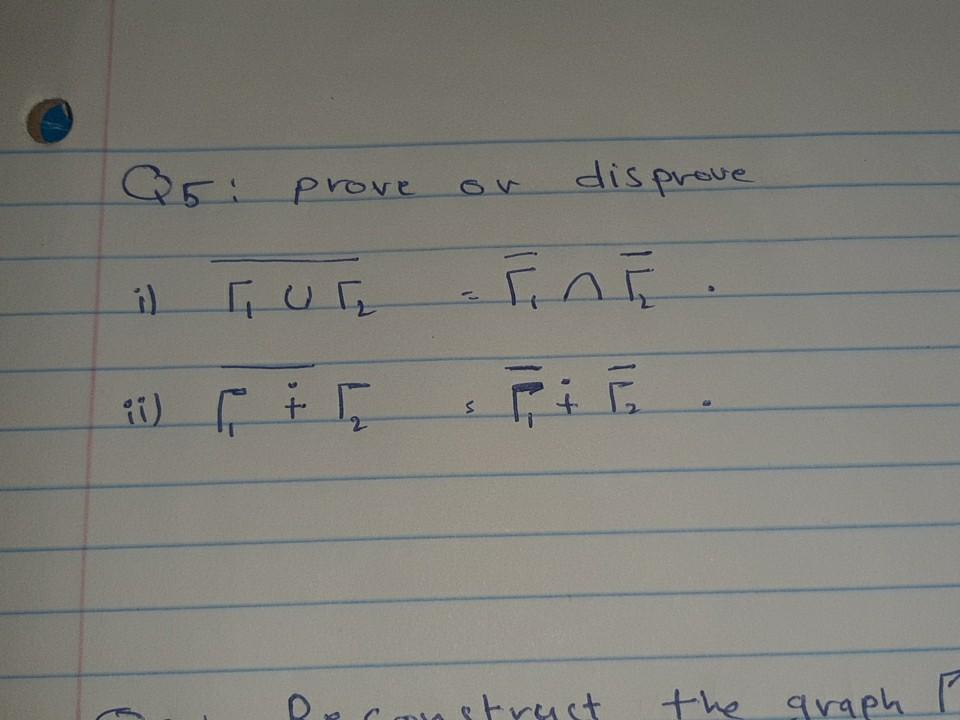 Q5: prove or disprove
i) $\overline{\Gamma_1 \cup \Gamma_2} = \overline{\Gamma}_1 \cap \overline{\Gamma}_2$ .
ii) $\overline{\Gamma_1 \dot{+} \Gamma_2} = \overline{\Gamma}_1 \dot{+} \overline{\Gamma}_2$ .
Reconstruct the graph Γ